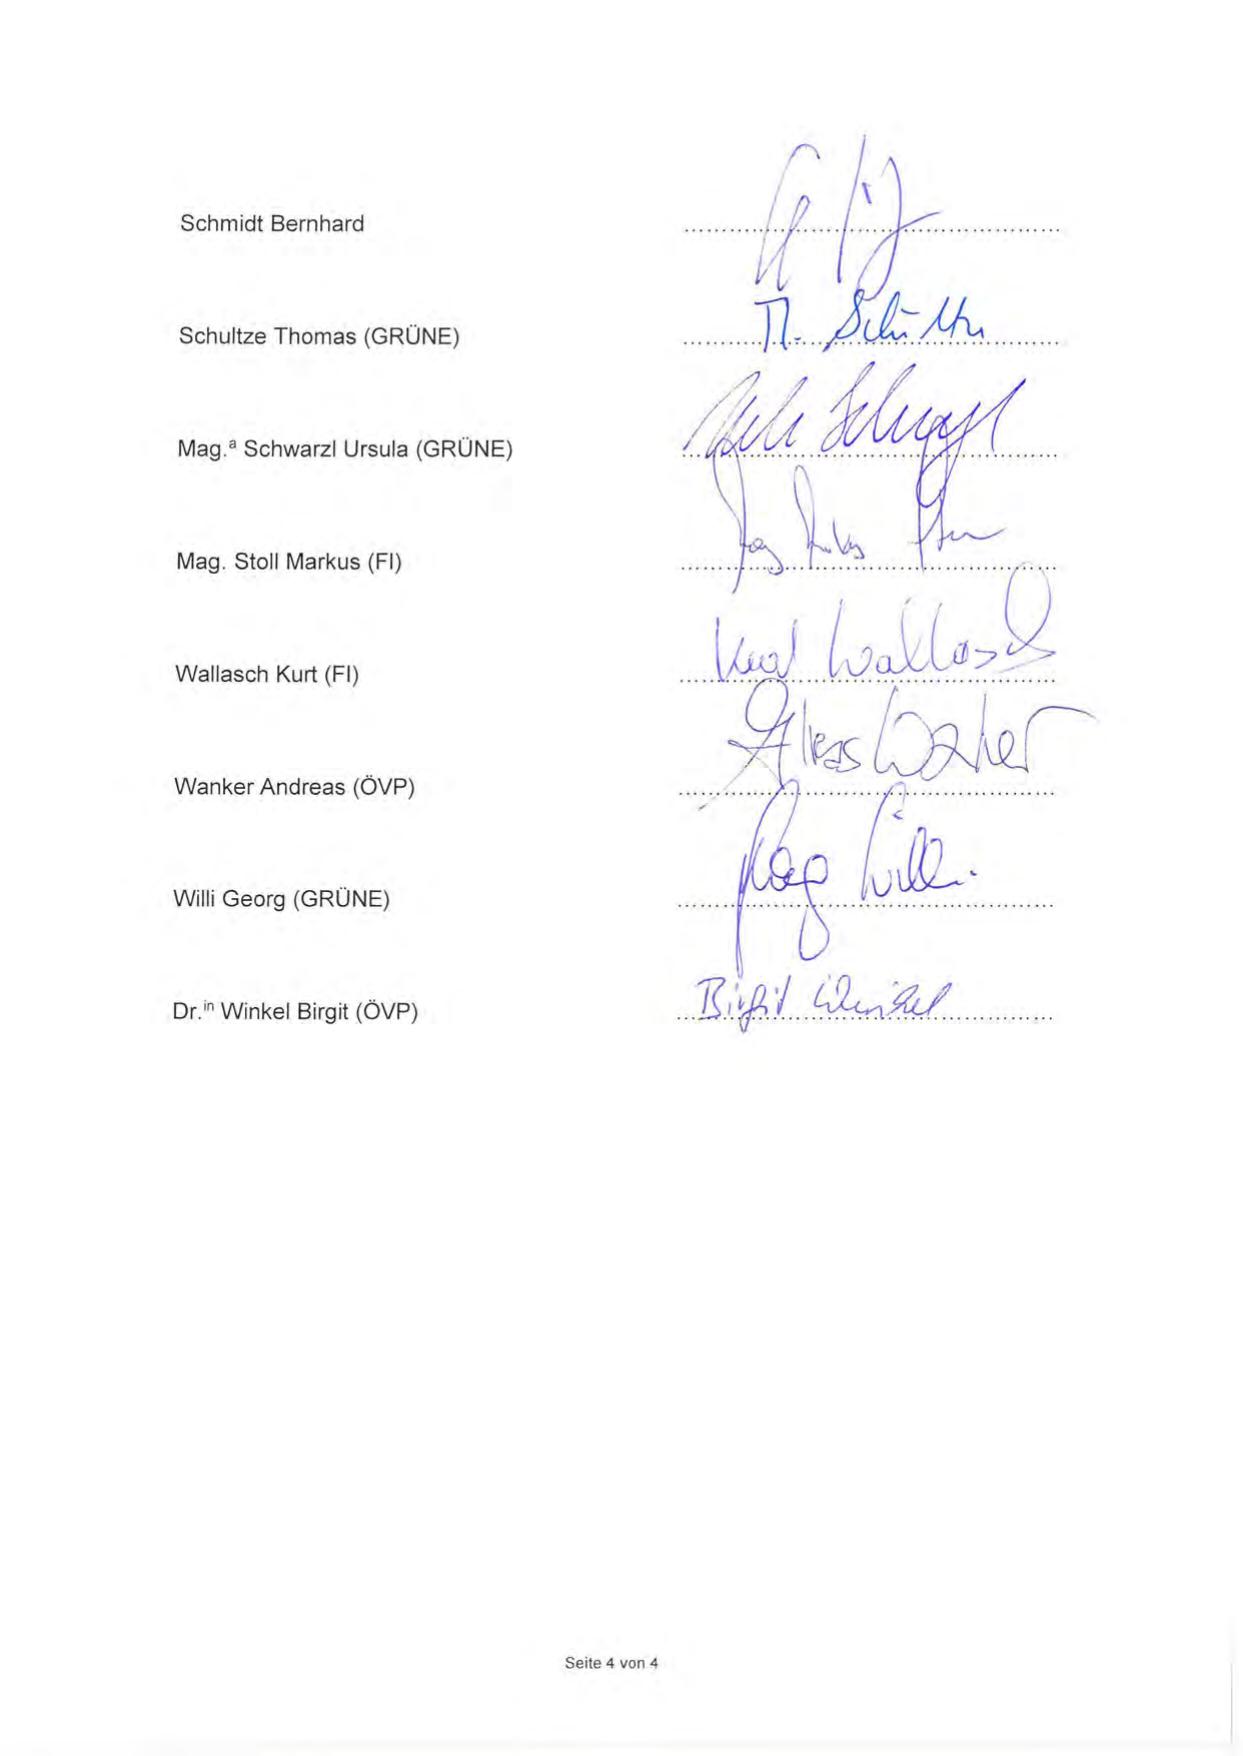 Schmidt Bernhard ........................................................
Schultze Thomas (GRÜNE) ........................................................
Mag.ª Schwarzl Ursula (GRÜNE) ........................................................
Mag. Stoll Markus (FI) ........................................................
Kurt Wallasch
Wallasch Kurt (FI) ........................................................
Wanker Andreas (ÖVP) ........................................................
Georg Willi
Willi Georg (GRÜNE) ........................................................
Birgit Winkel
Dr.ⁱⁿ Winkel Birgit (ÖVP) ........................................................
Seite 4 von 4